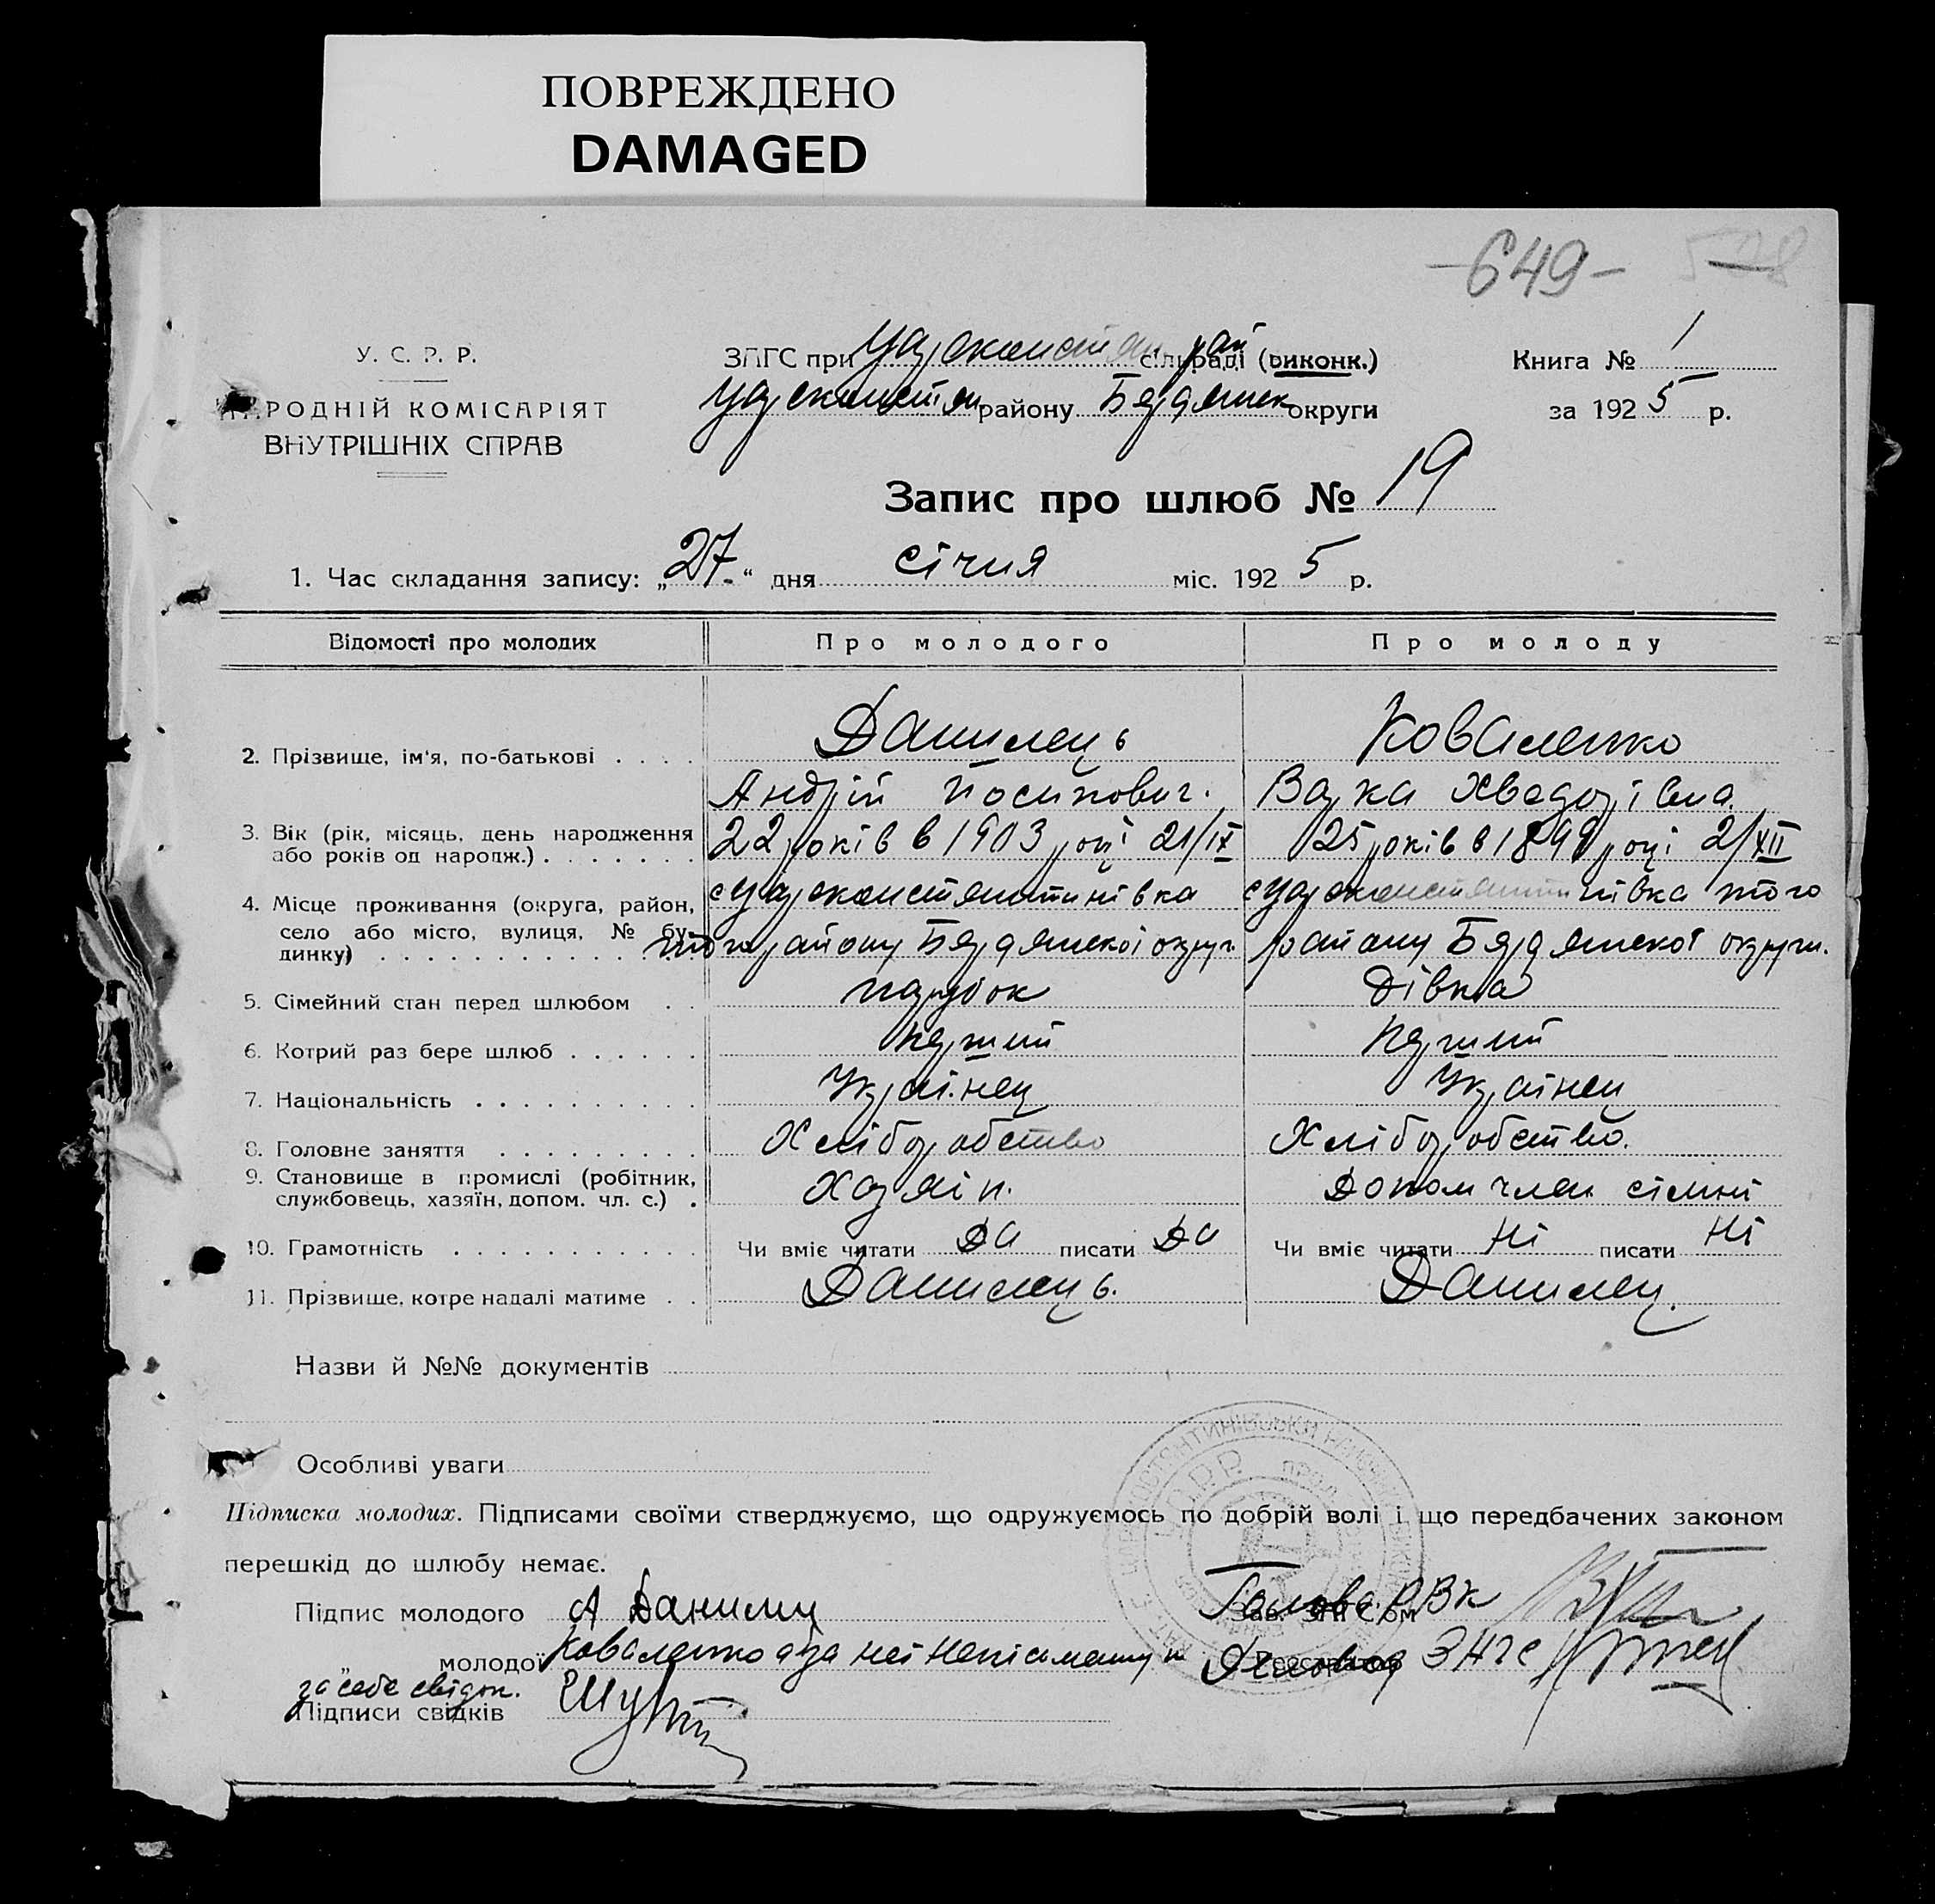 ПОВРЕЖДЕНО
DAMAGED
-649-
У. С. Р. Р.
НАРОДНІЙ КОМІСАРІЯТ
ВНУТРІШНІХ СПРАВ
ЗАГС при Царекостян рай сільраді (виконк.)
Царекостян району Бердянск округи
Книга № 1
за 192 5 р.
Запис про шлюб № 19
1. Час складання запису: „27“ дня січня міс. 192 5 р.
Відомості про молодих Про молодого Про молоду
2. Прізвище, ім'я, по-батькові . . . . Данилець Коваленко
Андрій Йосипович. Варка Хведорівна.
3. Вік (рік, місяць, день народження або років од народж.) . . . . . . . 22 років в 1903 році 21/IX 25 років в 1899 році 2/XII
4. Місце проживання (округа, район, село або місто, вулиця, № будинку) . . . с Царекостянтинівка того району Бердянскої округ. с Царекостянтинівка того району Бердянскої округи.
5. Сімейний стан перед шлюбом . . парубок Дівка
6. Котрий раз бере шлюб . . . . . . Перший Перший
7. Національність . . . . . . . . . . Українец Українец
8. Головне заняття . . . . . . . . . Хліборобство Хліборобство.
9. Становище в промислі (робітник, службовець, хазяїн, допом. чл. с.) . Хазяїн. Допом член сімні
10. Грамотність . . . . . . . . . . . Чи вміє читати Да писати Да Чи вміє читати Ні писати Ні
11. Прізвище, котре надалі матиме . . Данилець. Данилец.
Назви й №№ документів
Особливі уваги
Підписка молодих. Підписами своїми стверджуємо, що одружуємось по добрій волі і що передбачених законом
перешкід до шлюбу немає.
Підпис молодого А Данилец Голова РВК
„ молодої Коваленко а за неї ЗАГС
за себе свідок.
Підписи свідків